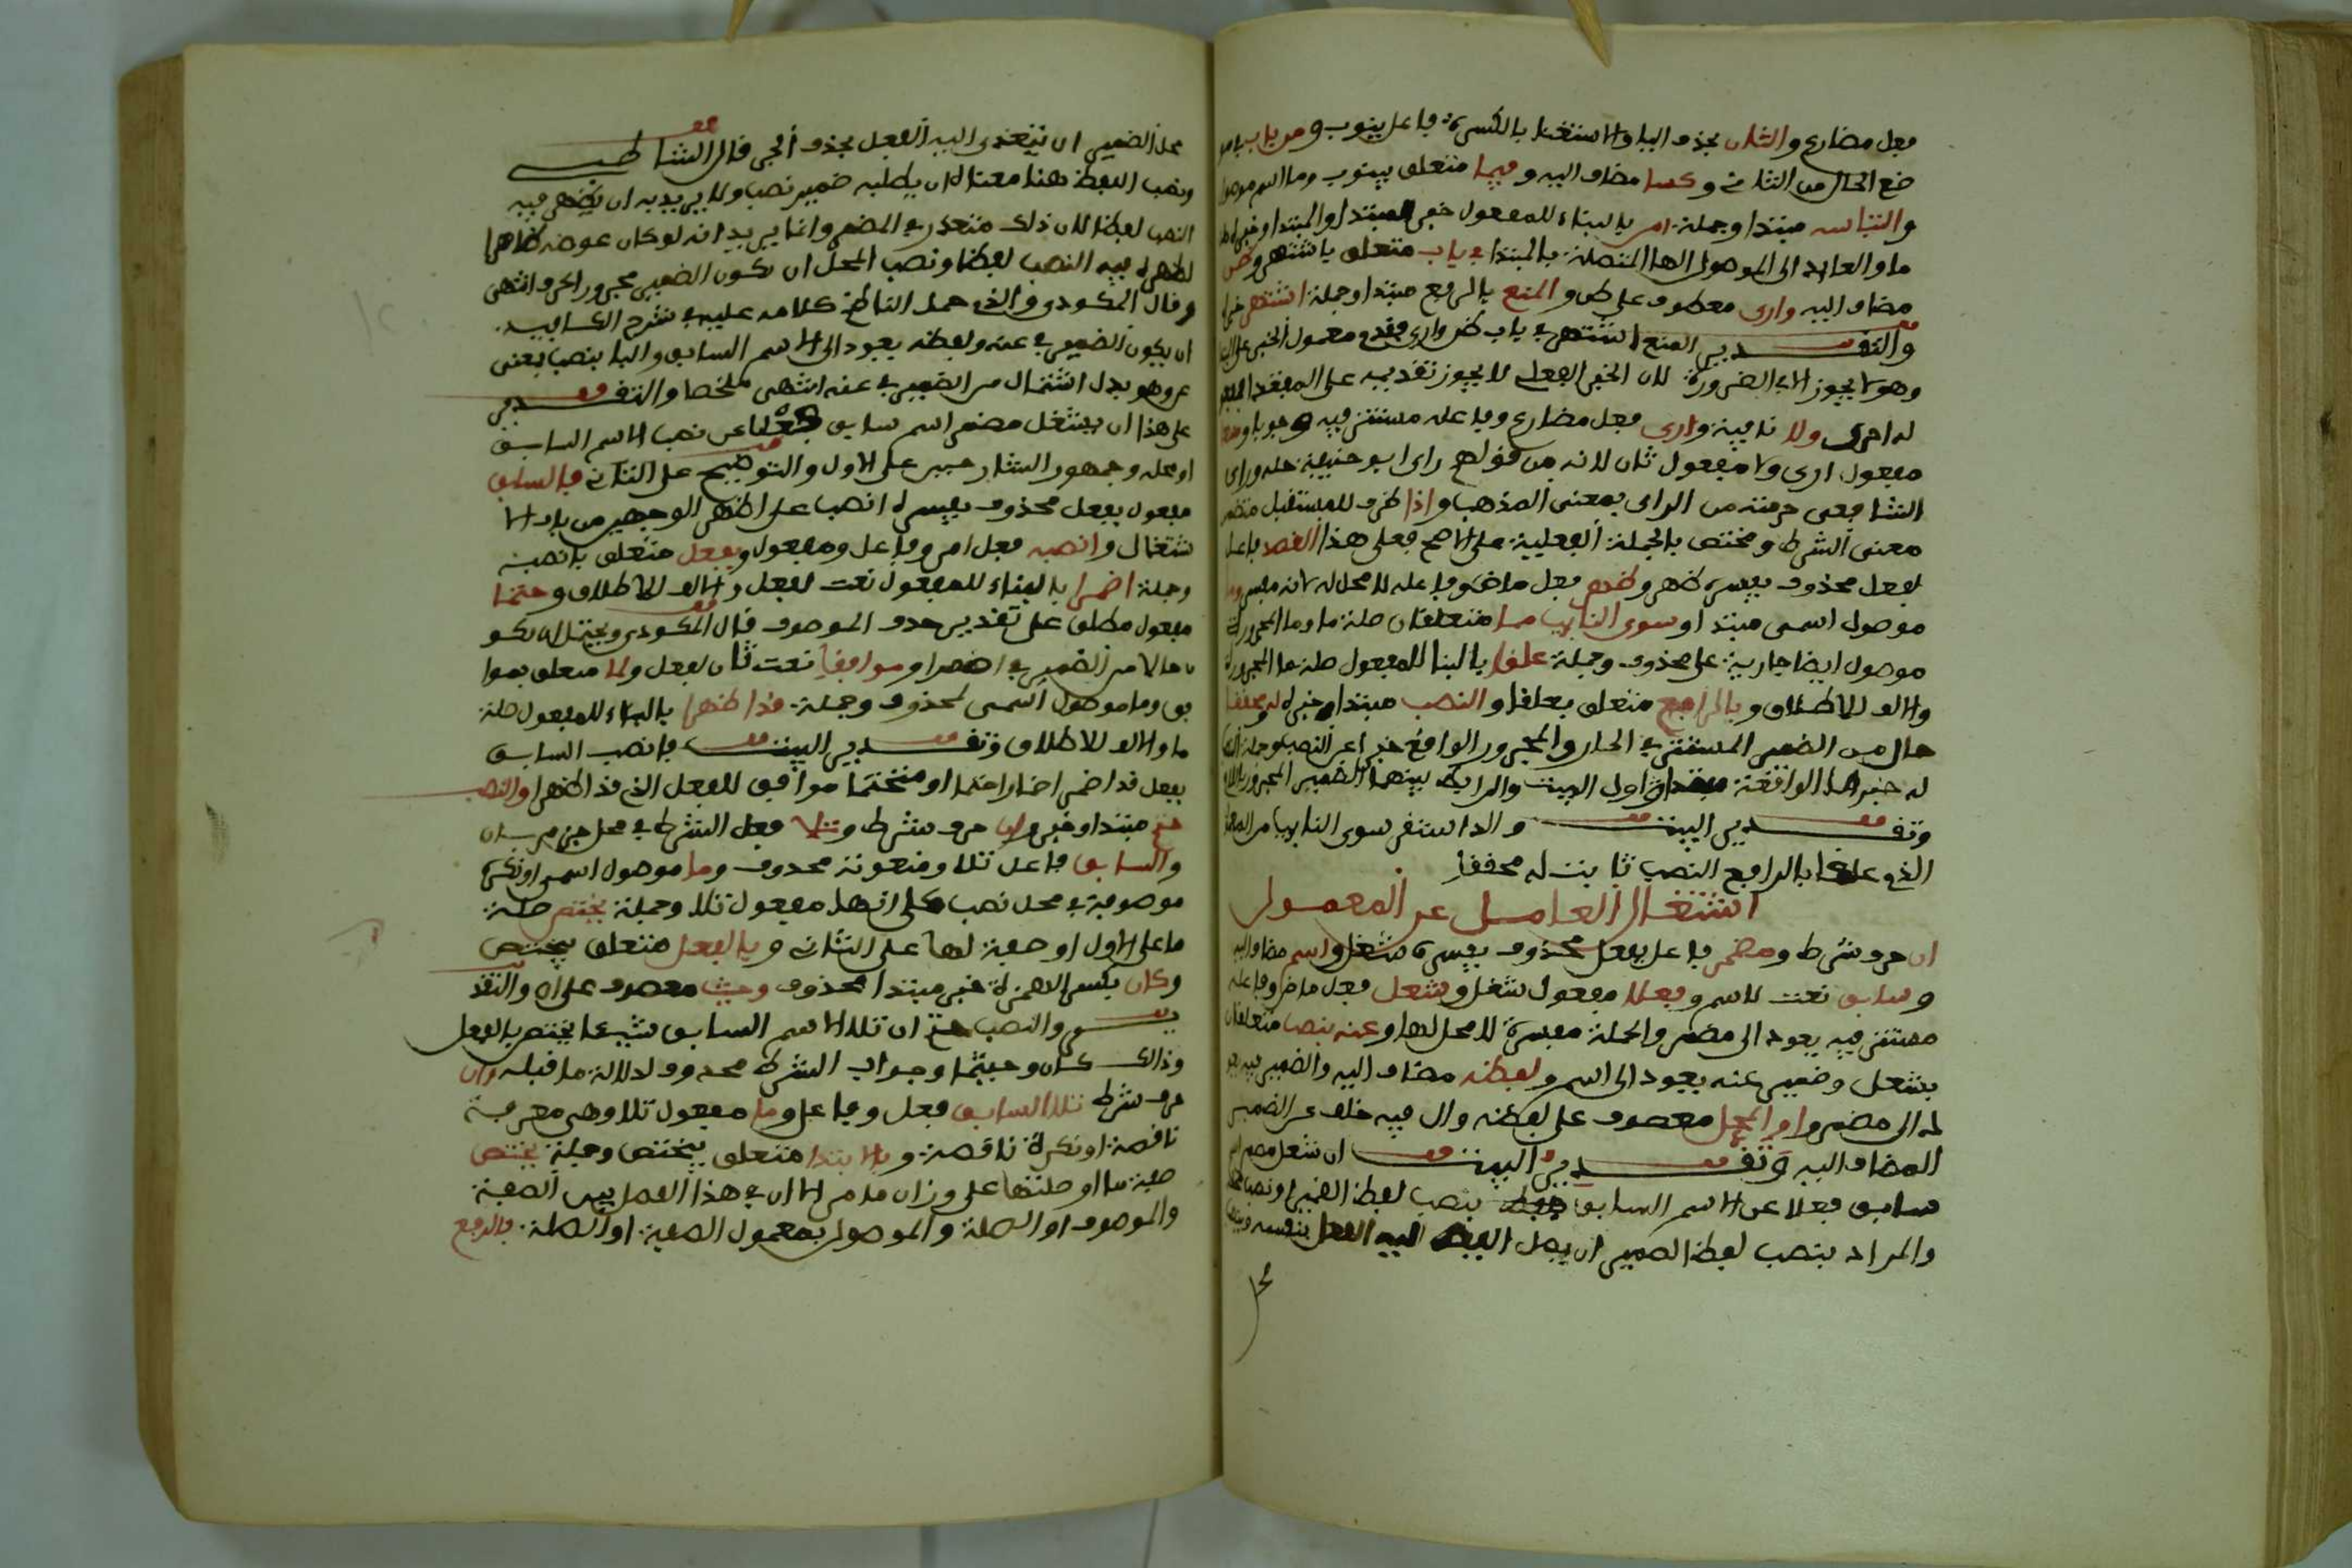 فعل مضارع والثان بحذف اليا والاستغنا بالكسرة فاعل ينوب ومن باب في مو
ضع الحال من الثاني وكسا مضاف اليه وفيما متعلق بينوب وما اسم موصول
والتباسه مبتدا وجملة امن بالبناء للمفعول خبر المبتدا والمبتدا وخبره
ما والعايد الى الموصول الها المتصلة بالمبتدا في باب متعلق باشتهر وظن
مضاف اليه وارى معطوف على ظن والمنع بالرفع مبتدا وجملة اشتهر خبره
والتقدير المنع اشتهر في باب ظن وارى فقدم معمول الخبر على المبتدا
وهو لا يجوز الا في الضرورة لان الخبر الفعلي لا يجوز تقديمه على المبتدا
له احرى ولا نافية وارى فعل مضارع وفاعله مستتر فيه وجوبا ومنعا
مفعول ارى ولا مفعول ثان لانه من قولهم راى ابو حنيفة حله وراى
الشافعي حرمته من الراى بمعنى المذهب واذا ظرف للمستقبل متضمن
معنى الشرط ومختص بالجملة الفعلية على الاصح فعلى هذا القصد فاعل
لفعل محذوف يفسره ظهر وظهر فعل ماض وفاعله لا محل له لانه مفسر وما
موصول اسمي مبتدا وسوى النايب مما متعلقان صلة ما وما المجرورة
موصول ايضا جارية على محذوف وجملة علقا بالبنا للمفعول صلة ما المجرورة
والالف للاطلاق وبالرافع متعلق بعلقا والنصب مبتدا وخبره له ومحققا
حال من الضمير المستتر في الجار والمجرور الواقع خبرا عن النصب وجملة النصب
له خبر ما الواقعة مبتدا في اول البيت والرابط بينهما الضمير المجرور باللام
وتقدير البيت والذا استقر سوى النايب من المعمول
الذي علق بالرافع النصب ثابت له محققا
اشتغال العامل عن المعمول
ان حرف شرط ومضمر فاعل بفعل محذوف يفسره شغل واسم مضاف اليه
وسابق نعت لاسم وفعلا مفعول شغل وشغل فعل ماض وفاعله
مستتر فيه يعود الى مضمر والجملة مفسرة لا محل لها وعنه بنصب متعلقان
بشغل وضمير عنه يعود الى اسم ولفظه مضاف اليه والضمير فيه يعود
له الى مضمر او المحل معطوف على لفظه وال فيه خلف عن الضمير
المضاف اليه وتقدير البيت ان شغل مضمر اسم
سابق فعلا عن الاسم السابق بنصب لفظ الضمير او نصب محله
والمراد بنصب لفظ الضمير ان يصل اليه الفعل بنفسه وبنصب
محل الضمير ان يتعدى اليه الفعل بحذف الجر قال الشاطبي
ونصب اللفظ هنا معناه ان يطلبه ضمير نصب ولا يريد به ان يظهر فيه
النصب لفظا لان ذلك متعذر في المضمر وانما يريد انه لو كان عوضه ظاهرا
لظهر فيه النصب لفظا ونصب المحل ان يكون الضمير مجرورا بحرف انتهى
وقال المكودي والذي حمل الناظم كلامه عليه في شرح الكافية
ان يكون الضمير في عنه ولفظه يعود الى الاسم السابق والبا بنصب بمعنى
عن وهو بدل اشتمال من الضمير في عنه انتهى ملخصا والتقدير
على هذا ان يشتغل مضمر اسم سابق فعلا عن نصب الاسم السابق
او محله وجمهور الشارحين على الاول والتوضيح على الثاني فالسابق
مفعول بفعل محذوف يفسره انصب على اظهر الوجهين من باب الا
شتغال وانصبه فعل امر وفاعل ومفعول وبفعل متعلق بانصبه
وجملة اضمرا بالبناء للمفعول نعت لفعل والالف للاطلاق وحتما
مفعول مطلق على تقدير حذف الموصوف قال المكودي ويحتمل ان يكو
ن حالا من الضمير في اضمرا وموافقا نعت ثان لفعل ولما متعلق بموا
فق وما موصول اسمي لمحذوف وجملة قد اظهرا بالبناء للمفعول صلة
ما والالف للاطلاق وتقدير البيت فانصب السابق
بفعل قد اضمر اضمارا حتما او منحتما موافق للفعل الذي قد اظهر والنصب
حتم مبتدا وخبر وان حرف شرط وتلا فعل الشرط في محل جزم بان
والسابق فاعل تلا ومنعوته محذوف وما موصول اسمي او نكرة
موصوفة في محل نصب على انها مفعول تلا وجملة يختص صلة
ما على الاول او صفة لها على الثاني وبالفعل متعلق بيختص
وكان بكسر الهمزة خبر مبتدا محذوف وحيثما معطوف على ان والتقد
ير والنصب حتم ان تلا الاسم السابق شيئا يختص بالفعل
وذلك كان وحيثما وجواب الشرط محذوف لدلالة ما قبله وان
حرف شرط تلا السابق فعل وفاعل وما مفعول تلا وهي معرفة
ناقصة او نكرة ناقصة وبالابتدا متعلق بيختص وجملة يختص
صفة ما او صلتها على وزان ما مر الا ان في هذا الفصل بين الصفة
والموصوف او الصلة والموصول بمعمول الصفة او الصلة فالرفع